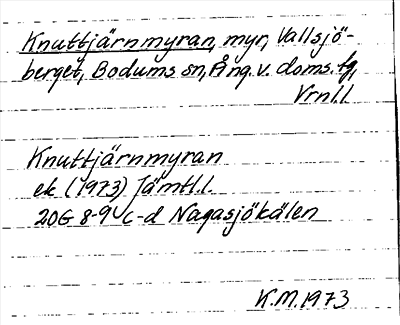 Knuttjärnmyran, myr, Vallsjö-
berget, Bodums sn, Ång. v. doms. tg,
Vrnl.l
Knuttjärnmyran
ek (1973) Jämtl.l.
20G 8-9 c-d Nagasjökälen
K.M. 1973